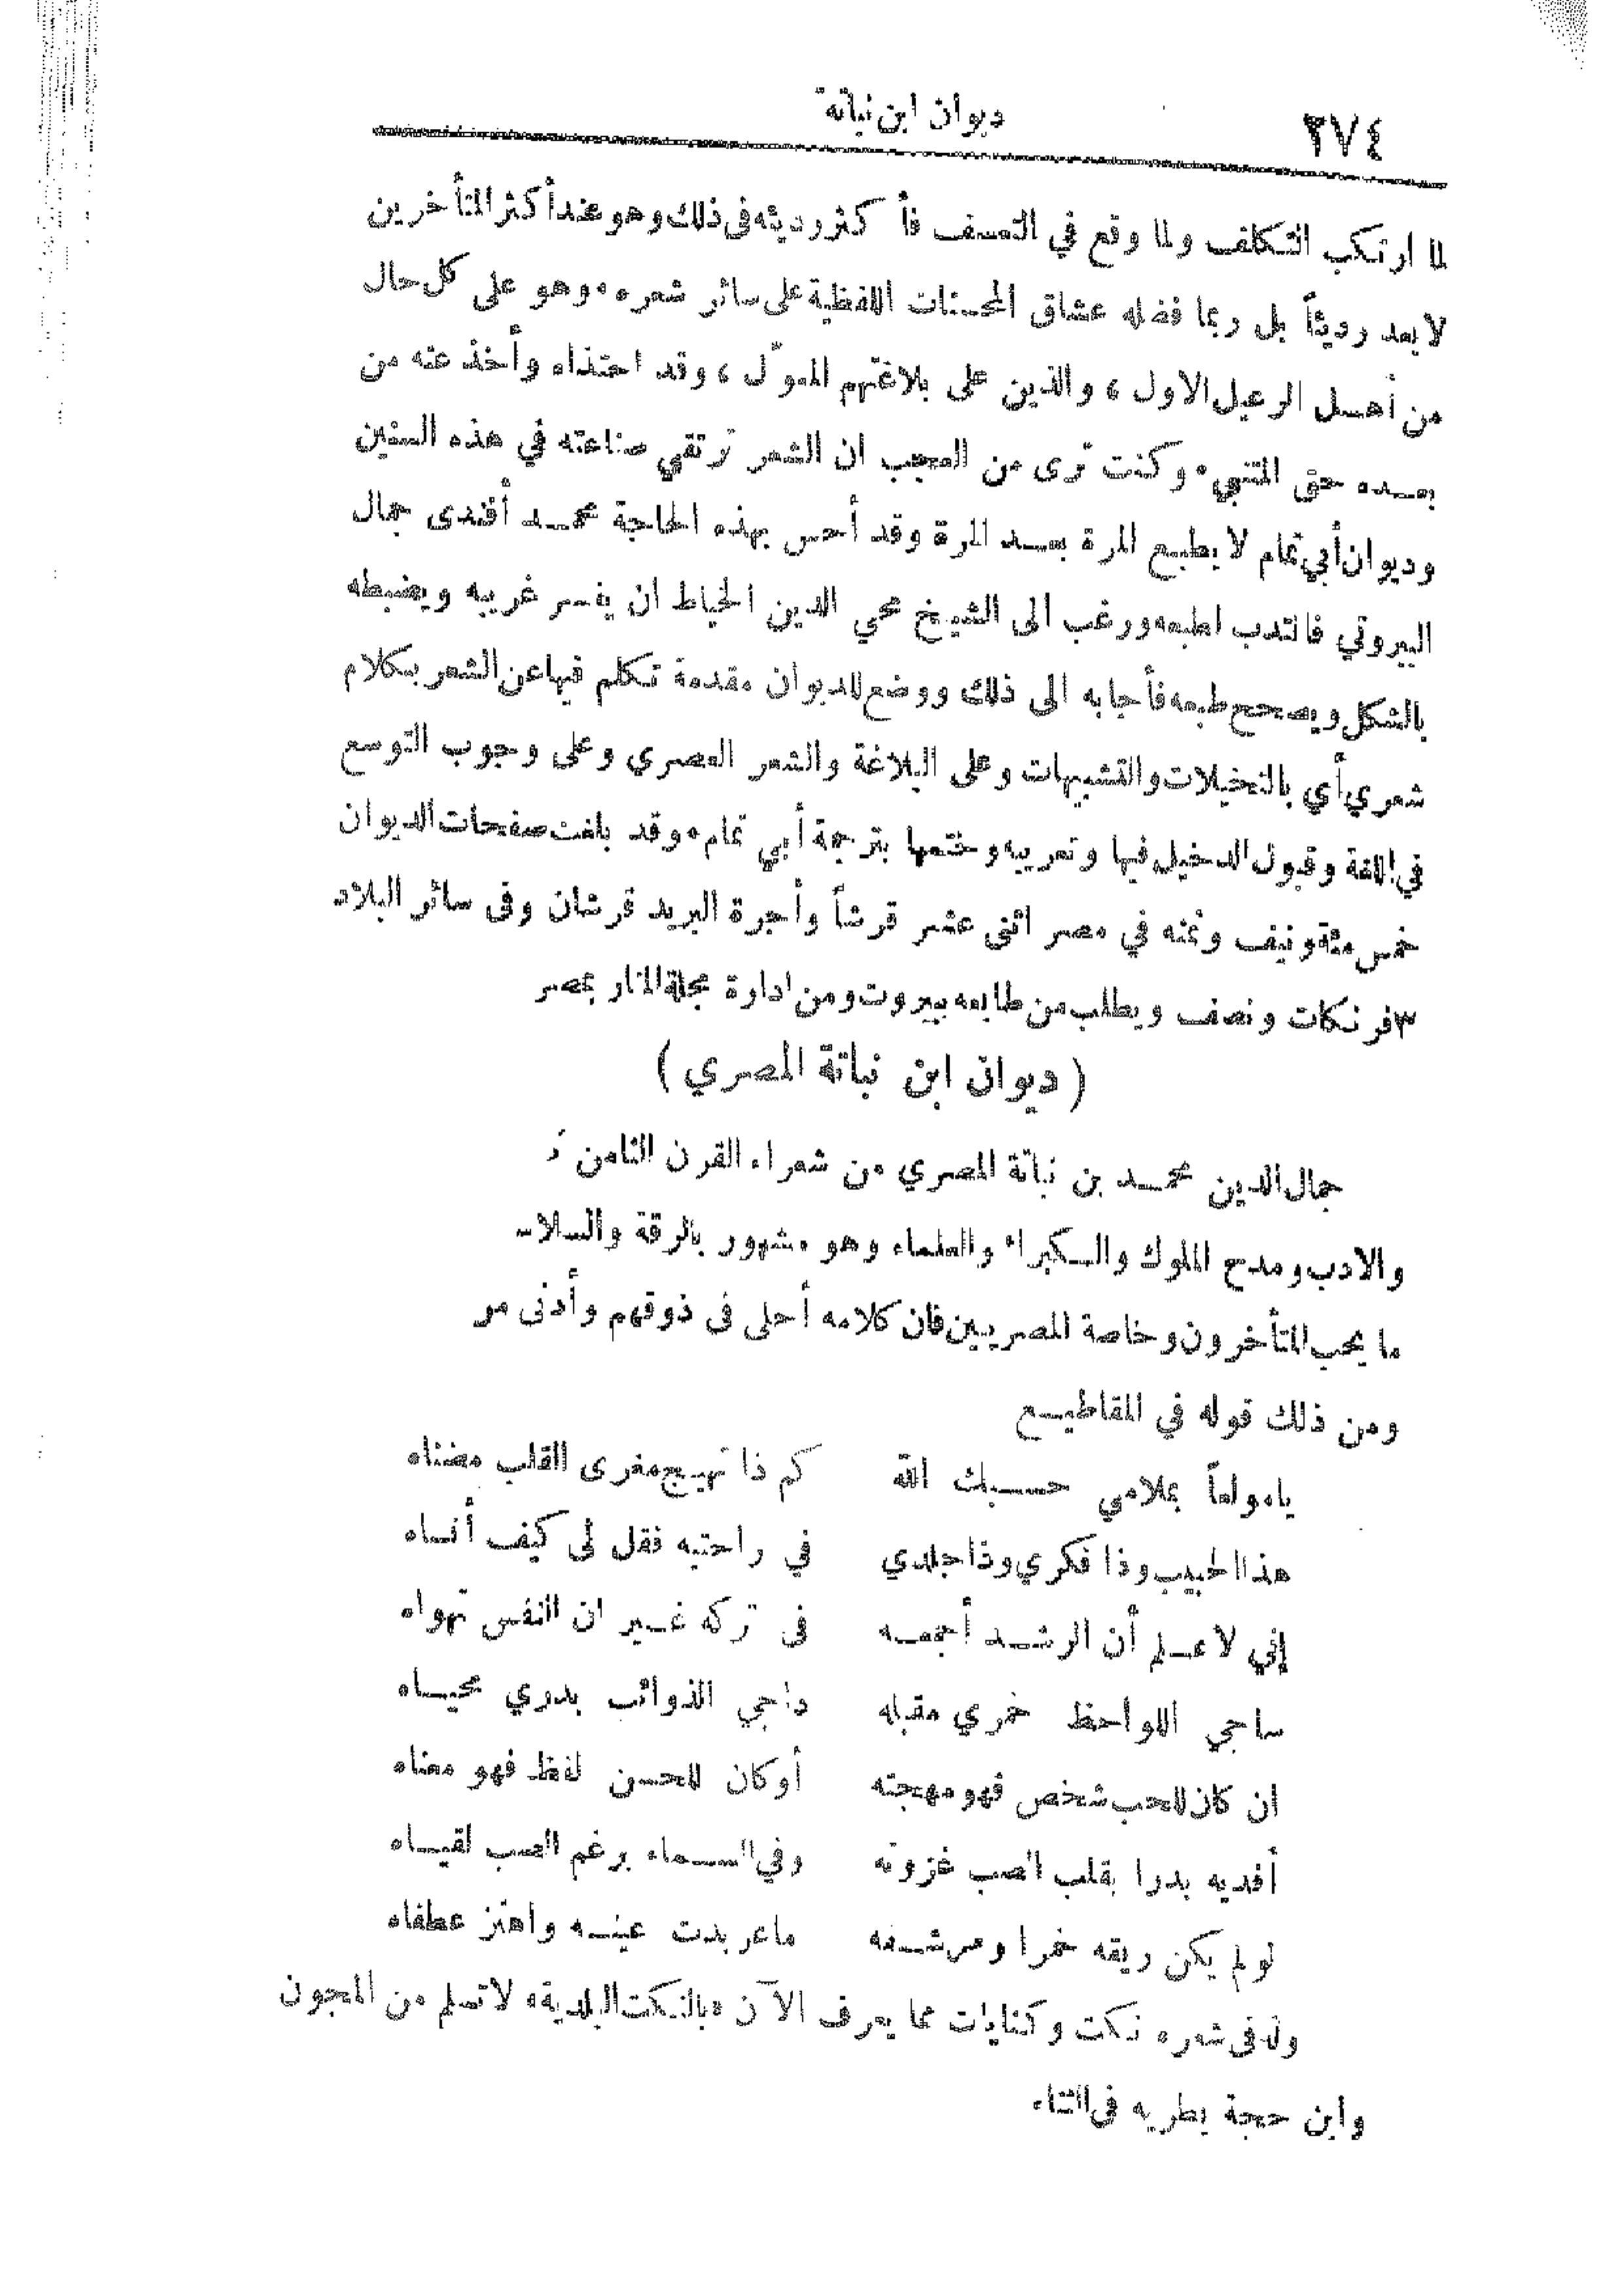 ٢٧٤
ديوان ابن نباتة
لما ارتكب التكلف ولما وقع في التعسف فأ كثر رديئه في ذلك وهو عند أكثر المتأخرين
لا يعد رديئاً بل ربما فضله عشاق المحسنات اللفظية على سائر شعره ٠ وهو على كل حال
من أهل الرعيل الاول ، والذين على بلاغتهم المعوّل ، وقد احتذاه وأخذ عنه من
بعده حتى المتنبي ٠ وكنت ترى من العجب ان الشعر ترتقي صناعته في هذه السنين
وديوان أبي تمام لا يطبع المرة بعد المرة وقد أحس بهذه الحاجة محمد أفندى جمال
البيروتي فانتدب لطبعه ورغب الى الشيخ محي الدين الخياط ان يفسر غريبه ويضبطه
بالشكل ويصحح طبعه فأجابه الى ذلك ووضع للديوان مقدمة تكلم فيها عن الشعر بكلام
شعري أي بالتخيلات والتشبيهات وعلى البلاغة والشعر العصري وعلى وجوب التوسع
في اللغة وقبول الدخيل فيها وتعريبه وختمها بترجمة أبي تمام ٠ وقد بلغت صفحات الديوان
خمس مئة ونيف وثمنه في مصر اثنى عشر قرشاً وأجرة البريد قرشان وفى سائر البلاد
٣ فرنكات ونصف ويطلب من طابعه ببيروت ومن ادارة مجلة المنار بمصر
( ديوان ابن نباتة المصري )
جمال الدين محمد بن نباتة المصري من شعراء القرن الثامن
والادب ومدح الملوك والكبراء والعلماء وهو مشهور بالرقة
ما يحب المتأخرون وخاصة المصريين فان كلامه أحلى فى ذوقهم وأدنى
ومن ذلك قوله في المقاطيع
يا مولعاً بملامي حسبك الله كم ذا تهيج مغرى القلب مضناه
هذا الحبيب وذا فكري وذا جلدي في راحتيه فقل لى كيف أنساه
إني لاعلم أن الرشد أجمعه فى تركه غير ان النفس تهواه
ساجي اللواحظ خمري مقبله داجي الذوائب بدري محياه
ان كان للحب شخص فهو مهجته أو كان للحسن لفظ فهو معناه
أفديه بدرا بقلب الصب غزوته وفي السماء برغم الصب لقياه
لو لم يكن ريقه خمرا ومرشفه ما عربدت عينه واهتز عطفاه
وله فى شعره نكت وكنايات مما يعرف الآن «بالنكت البلدية» لا تسلم من المجون
وابن حجة يطريه فى الثناء